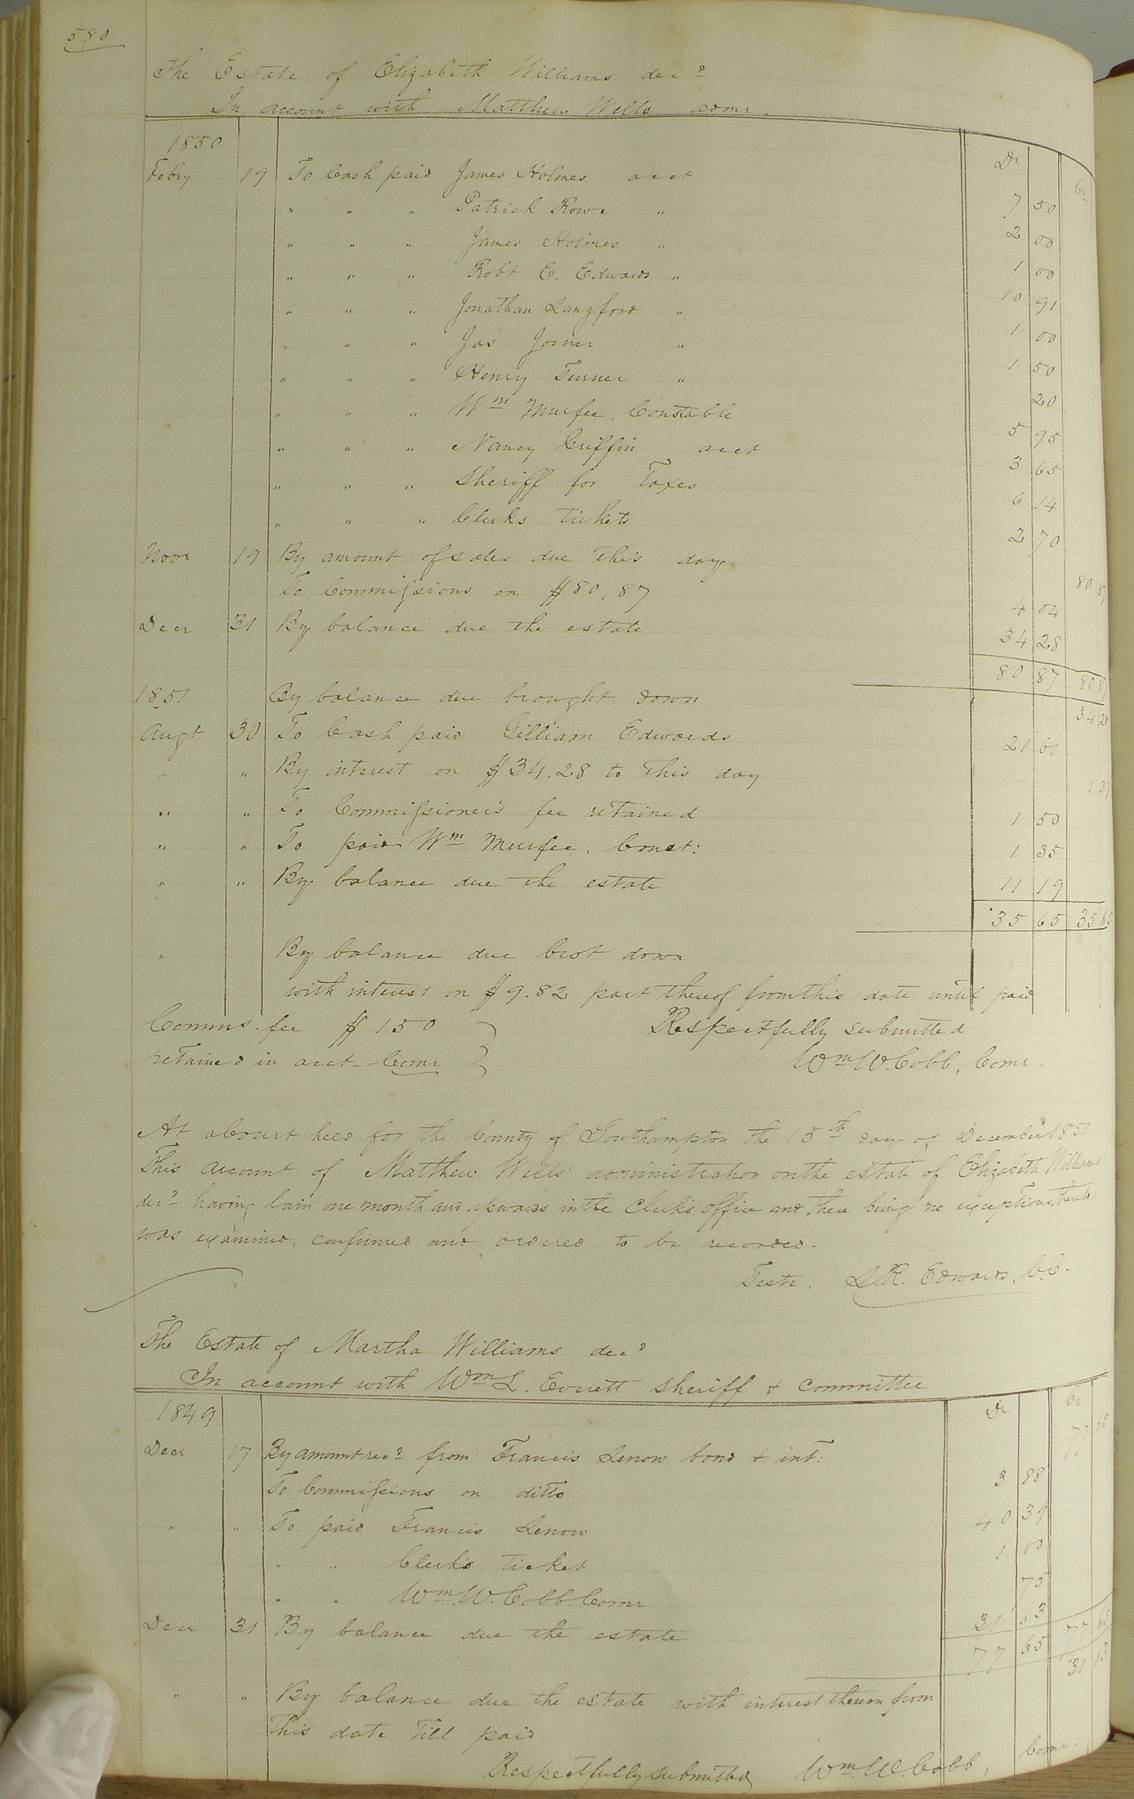 580
The Estate of Elizabeth Williams decd
In account with Matthew Wells admr.
1850 Dr Cr
Feby 19 To Cash paid James Holmes acct 7 50
" " " Patrick Rowe " 2 00
" " " James Holmes " 1 00
" " " Robt E. Edwards " 10 91
" " " Jonathan Langford " 1 00
" " " Jas Joiner " 1 50
" " " Henry Turner " 20
" " " Wm Murfee, Constable 5 95
" " " Nancy Griffin acct 3 65
" " " Sheriff for Taxes 6 14
" " " Clerks tickets 2 70
Novr 19 By amount of sales due this day 80 87
To Commissions on $80.87 4 04
Decr 31 By balance due the estate 34 28
80 87 80 87
1851 By balance due brought down 34 28
Augt 30 To Cash paid Gilliam Edwards 21 61
" " By interest on $34.28 to this day 1 37
" " To Commissioner's fee retained 1 50
" " To paid Wm Murfee, Const: 1 35
" " By balance due the estate 11 19
35 65 35 65
" By balance due brot down
with interest on $9.82 part thereof from this date until paid
Comrs. fee $1 50 Respectfully submitted
retained in acct Comr Wm W. Cobb, Comr.
At a Court held for the County of Southampton the 15th day of December 1851
This account of Matthew Wells administration on the estate of Elizabeth Williams
decd having lain one month and upwards in the Clerk's office and there being no exceptions thereto
was examined, confirmed and ordered to be recorded.
Teste. L.R. Edwards, C.C.
The Estate of Martha Williams decd
In account with Wm L. Everett Sheriff & Committee
1849 Dr Cr
Decr 17 By amount recd from Francis Lenow bond & int: 77 65
To Commissions on ditto 3 88
" " To paid Francis Lenow 40 39
" " Clerks ticket 1 00
" " Wm. W. Cobb Comr 75
Decr 31 By balance due the estate 31 63
77 65 77 65
" " By balance due the estate with interest thereon from 31 63
this date till paid
Respectfully submitted Wm. W. Cobb, Comr.